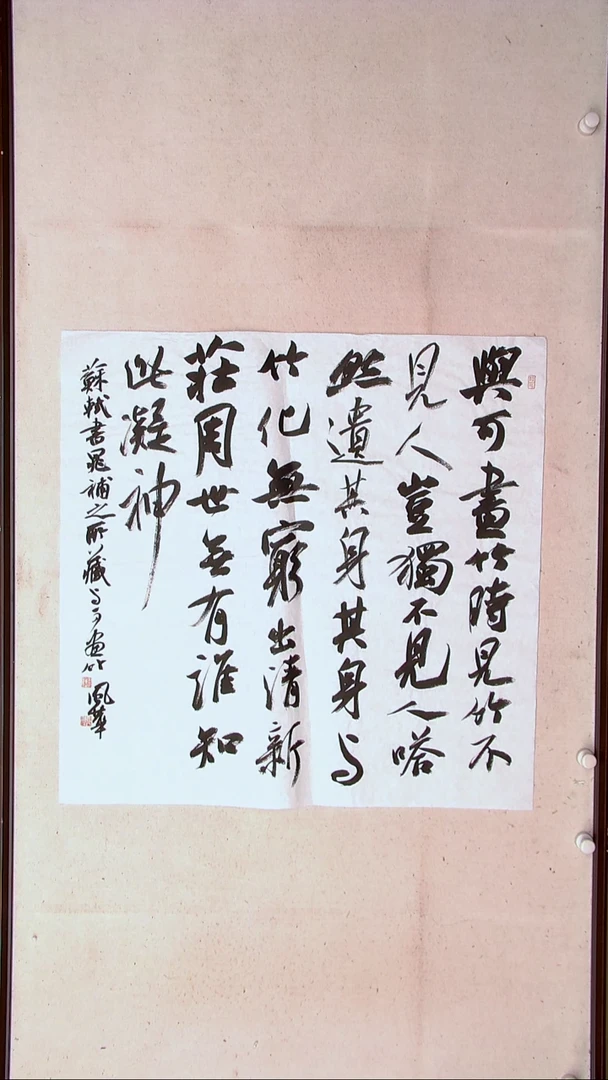 與可畫竹時見竹不
見人豈獨不見人嗒
然遺其身其身与
竹化無窮出清新
莊周世無有誰知
此凝神
蘇軾書晁補之所藏与可畫竹 風華